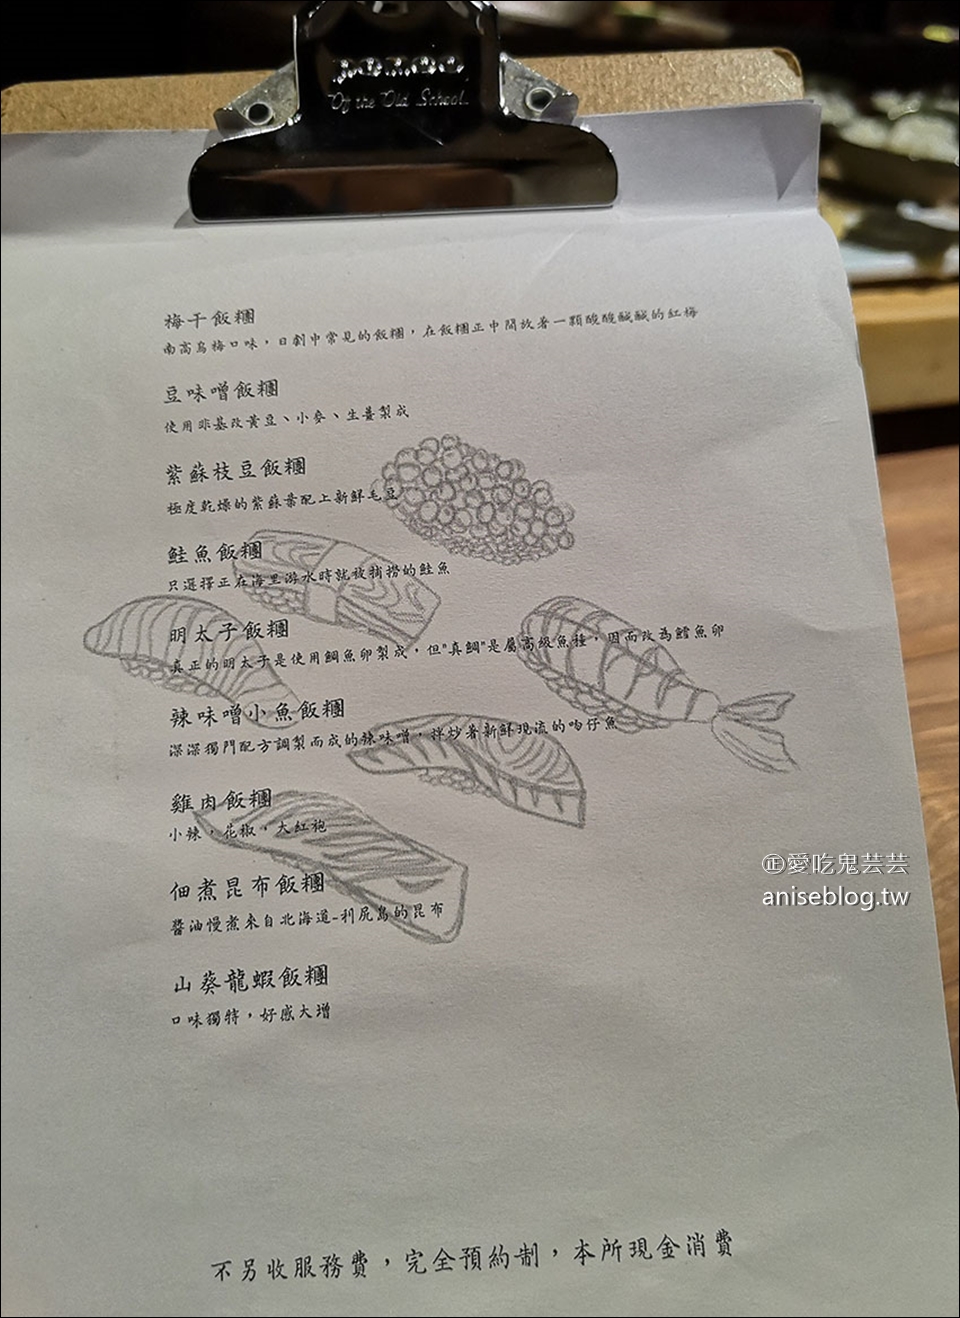 Of the Old School
梅干飯糰
南高烏梅口味，日劇中常見的飯糰，在飯糰正中間放著一顆酸酸鹹鹹的紅梅
豆味噌飯糰
使用非基改黃豆、小麥、生薑製成
紫蘇枝豆飯糰
極度乾燥的紫蘇葉配上新鮮毛豆
鮭魚飯糰
只選擇正在海里游水時就被捕撈的鮭魚
明太子飯糰
真正的明太子是使用鯛魚卵製成，但"真鯛"是屬高級魚種，因而改為鱈魚卵
辣味噌小魚飯糰
深深獨門配方調製而成的辣味噌，拌炒著新鮮現流的吻仔魚
雞肉飯糰
小辣，花椒，大紅袍
佃煮昆布飯糰
醬油慢煮來自北海道-利尻島的昆布
山葵龍蝦飯糰
口味獨特，好感大增
㊣愛吃鬼芸芸
aniseblog.tw
不另收服務費，完全預約制，本所現金消費